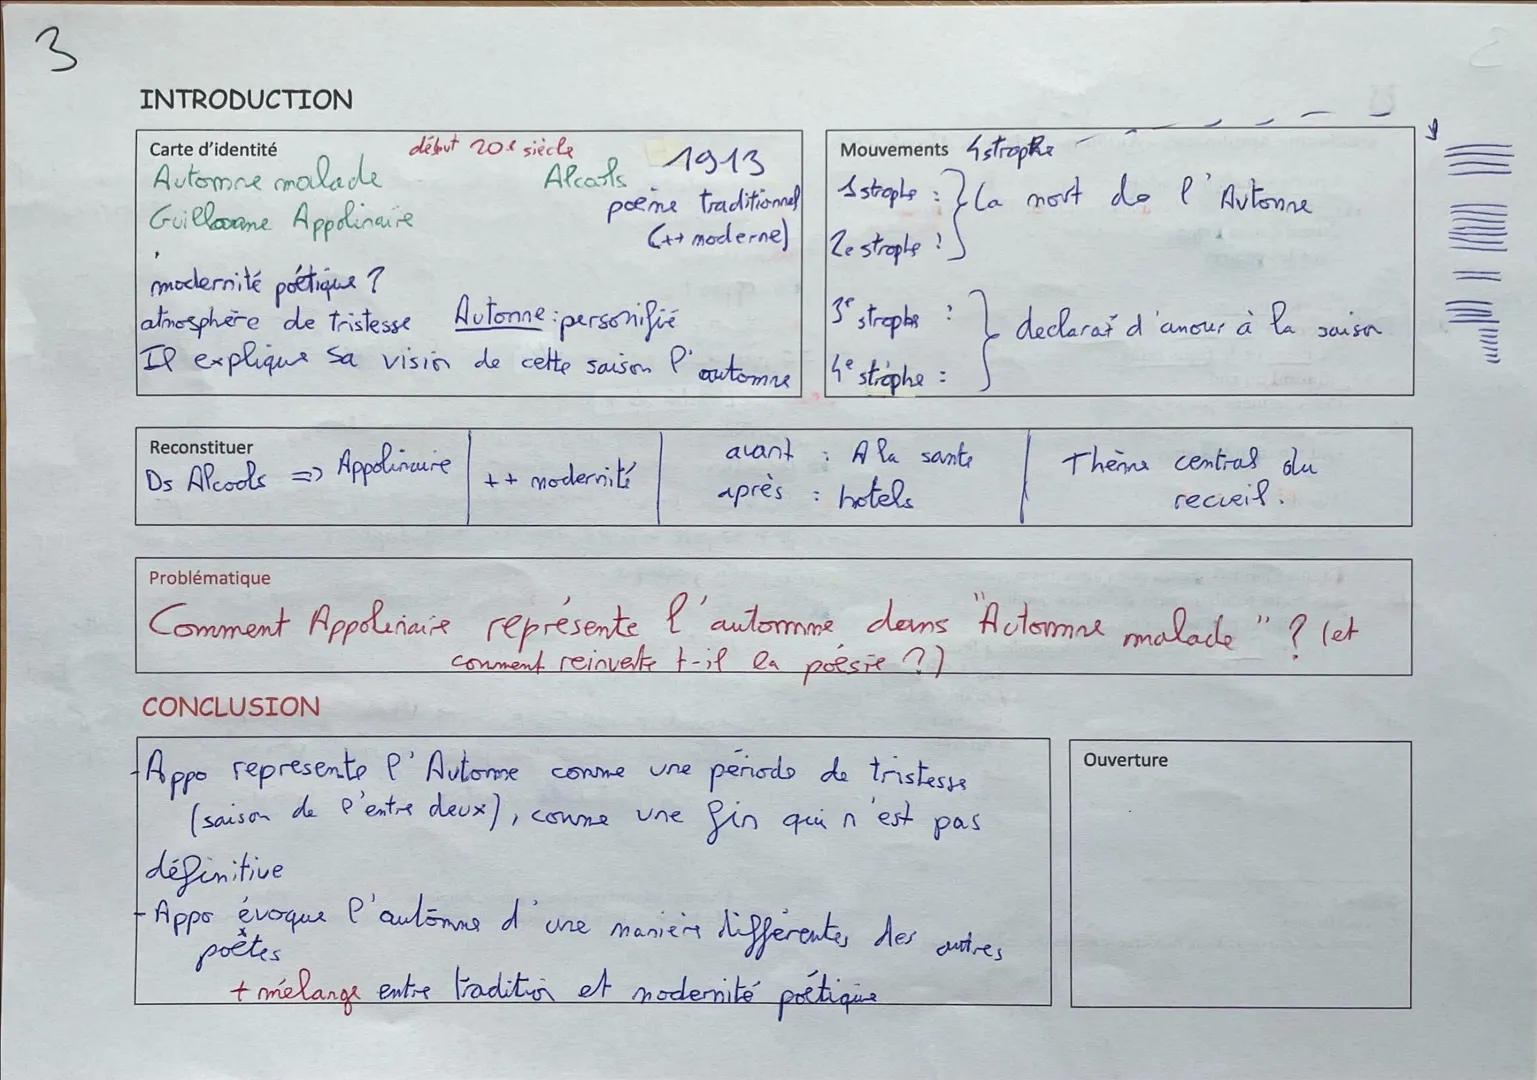 3
INTRODUCTION
Carte d'identité
début 20e siècle
Automne malade
Alcools
1913
Guillaume Appolinaire
poème traditionnel
(++ moderne)
modernité poétique ?
atmosphère de tristesse
Automne : personifié
Il explique sa vision de cette saison l'automne
Mouvements 4 strophe
1 strophe :
2e strophe :
La mort de l'Automne
3e strophe :
4e strophe :
declarat° d'amour à la saison
Reconstituer
Ds Alcools => Appolinaire
++ modernité
avant : A la sante
après : hotels
Thème central du
recueil.
Problématique
Comment Appolinaire représente l'automne dans "Automne malade" ? (et
comment reinvente t-il la poésie ?)
CONCLUSION
- Appo represente l'Automne comme une période de tristesse
(saison de l'entre deux), comme une fin qui n'est pas
définitive
- Appo évoque l'automne d'une manière différentes des autres
poètes
+ mélange entre tradition et modernité poétique
Ouverture